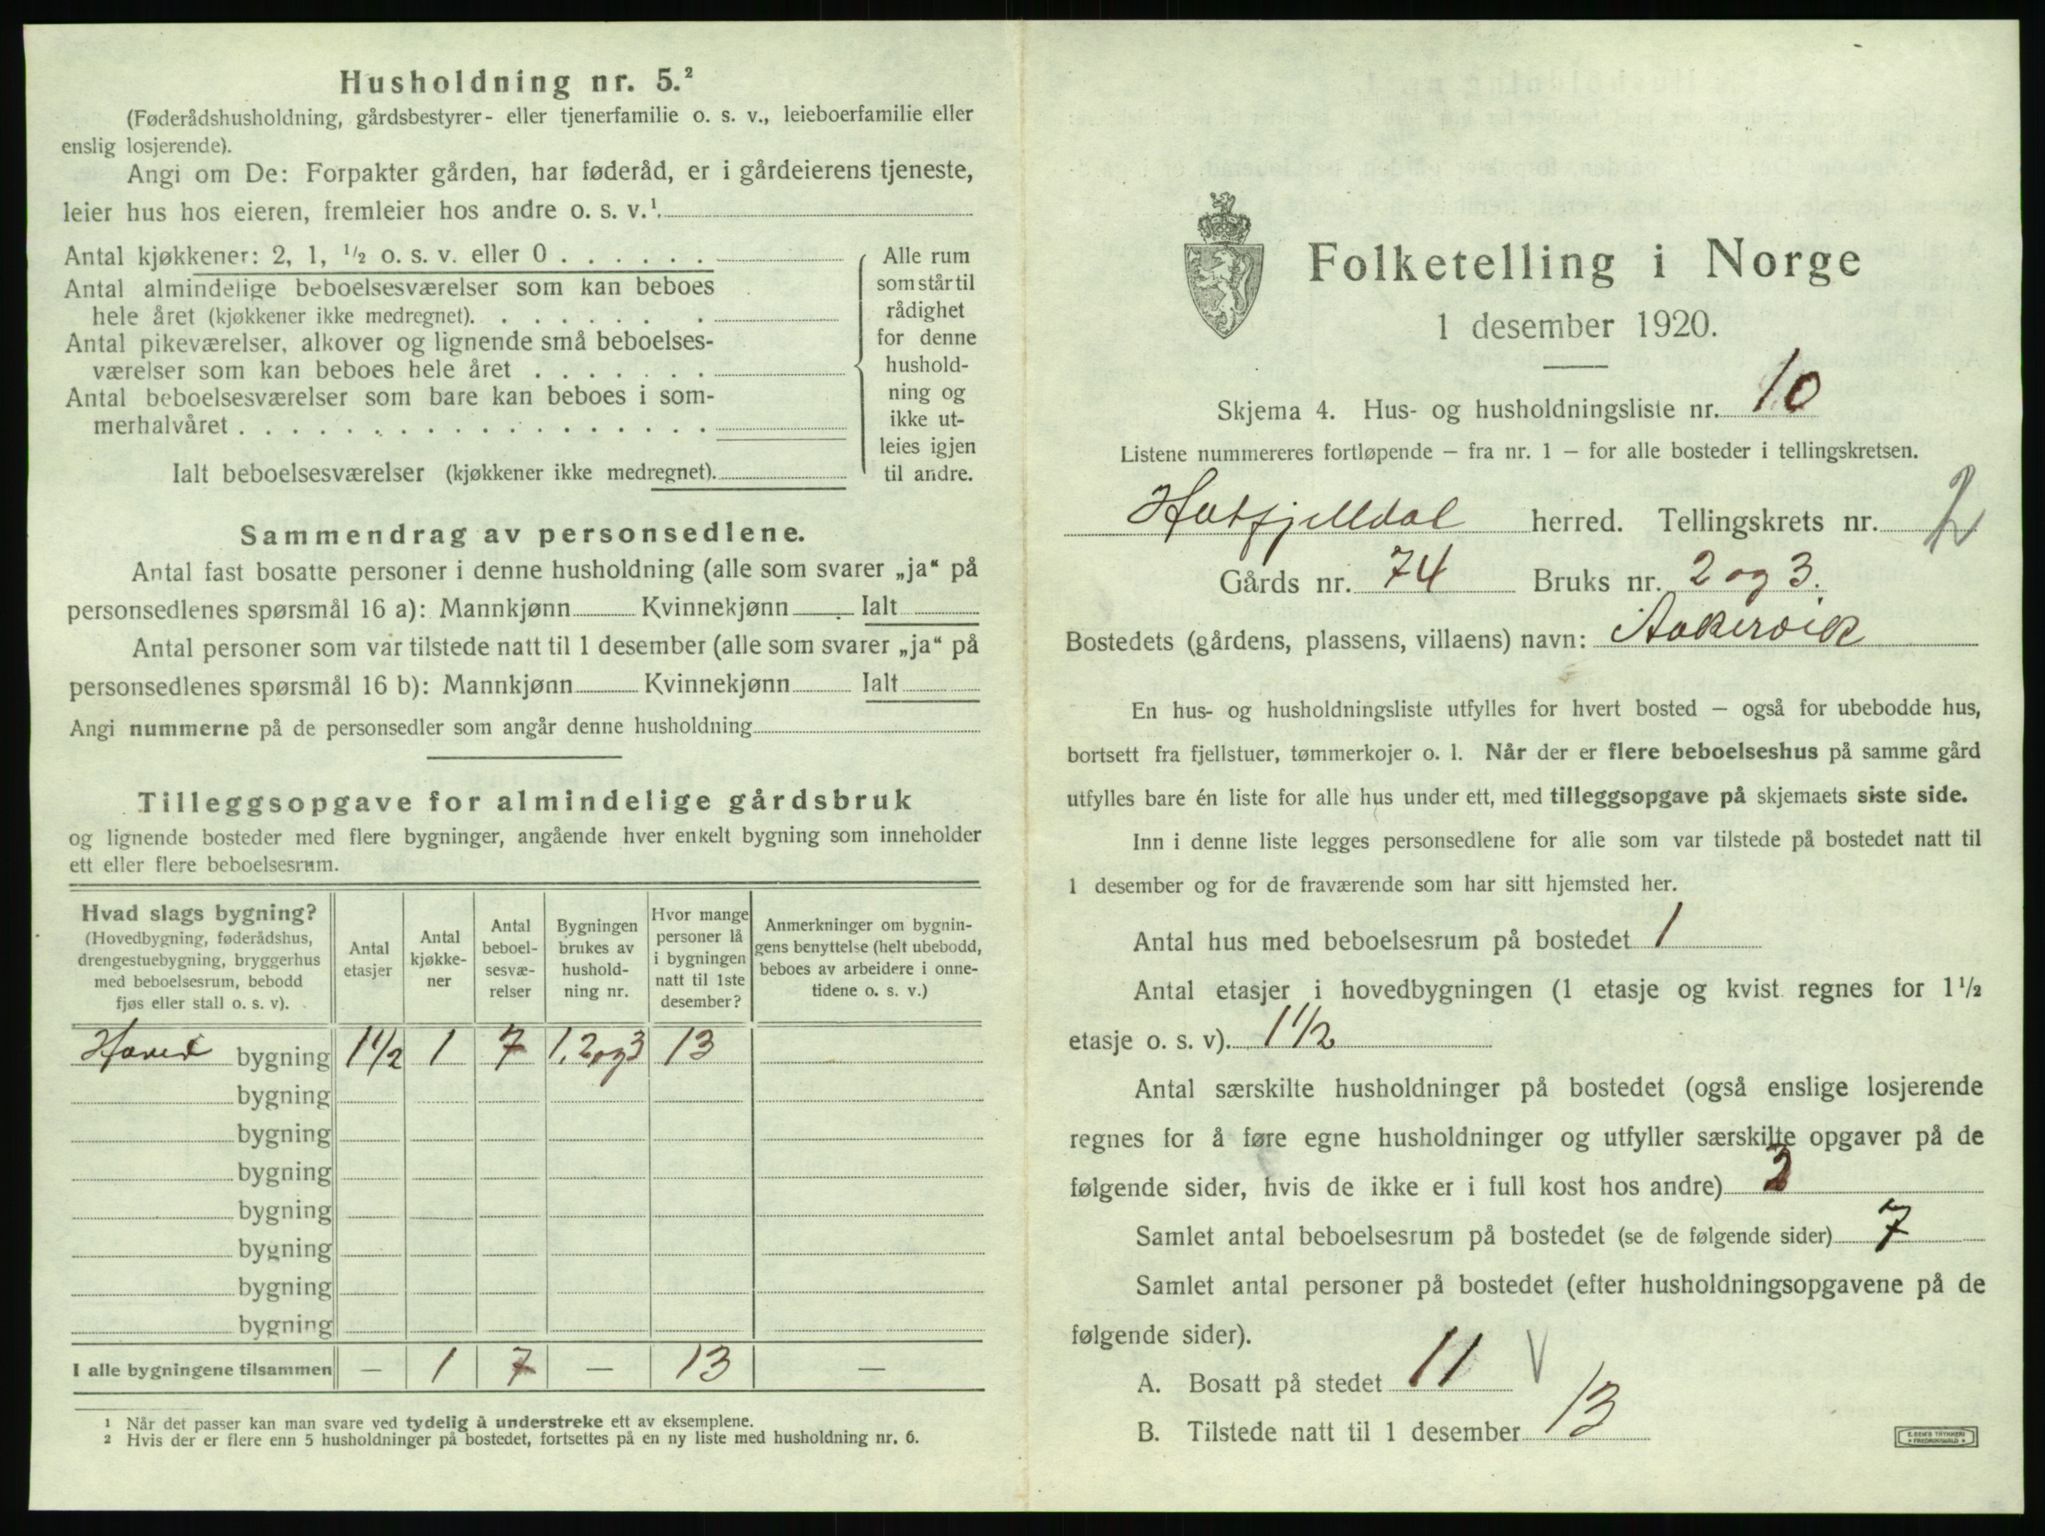 Husholdning nr. 5.²
(Føderådshusholdning, gårdsbestyrer- eller tjenerfamilie o. s. v., leieboerfamilie eller
enslig losjerende).
Angi om De: Forpakter gården, har føderåd, er i gårdeierens tjeneste,
leier hus hos eieren, fremleier hos andre o. s. v.¹
Antal kjøkkener: 2, 1, ½ o. s. v. eller 0
Antal almindelige beboelsesværelser som kan beboes
hele året (kjøkkener ikke medregnet).
Antal pikeværelser, alkover og lignende små beboelses-
værelser som kan beboes hele året
Antal beboelsesværelser som bare kan beboes i som-
merhalvåret
Ialt beboelsesværelser (kjøkkener ikke medregnet).
Alle rum
som står til
rådighet
for denne
hushold-
ning og
ikke ut-
leies igjen
til andre.
Sammendrag av personsedlene.
Antal fast bosatte personer i denne husholdning (alle som svarer „ja“ på
personsedlenes spørsmål 16 a): Mannkjønn Kvinnekjønn Ialt
Antal personer som var tilstede natt til 1 desember (alle som svarer „ja“ på
personsedlenes spørsmål 16 b): Mannkjønn Kvinnekjønn Ialt
Angi nummerne på de personsedler som angår denne husholdning
Tilleggsopgave for almindelige gårdsbruk
og lignende bosteder med flere bygninger, angående hver enkelt bygning som inneholder
ett eller flere beboelsesrum.
Hvad slags bygning?
(Hovedbygning, føderådshus,
drengestuebygning, bryggerhus
med beboelsesrum, bebodd
fjøs eller stall o. s. v).
Antal
etasjer
Antal
kjøkke-
ner
Antal
beboel-
sesvæ-
relser
Bygningen
brukes av
hushold-
ning nr.
Hvor mange
personer lå
i bygningen
natt til 1ste
desember?
Anmerkninger om bygnin-
gens benyttelse (helt ubebodd,
beboes av arbeidere i onne-
tidene o. s. v.)
Hoved bygning 1½ 1 7 1, 2 og 3 13
bygning
bygning
bygning
bygning
bygning
bygning
bygning
I alle bygningene tilsammen — 1 7 — 13 —
¹ Når det passer kan man svare ved tydelig å understreke ett av eksemplene.
² Hvis der er flere enn 5 husholdninger på bostedet, fortsettes på en ny liste med husholdning nr. 6.
Folketelling i Norge
1 desember 1920.
Skjema 4. Hus- og husholdningsliste nr. 10
Listene nummereres fortløpende – fra nr. 1 – for alle bosteder i tellingskretsen.
Hatfjelldal herred. Tellingskrets nr. 2
Gårds nr. 74 Bruks nr. 2 og 3.
Bostedets (gårdens, plassens, villaens) navn: Aakervik
En hus- og husholdningsliste utfylles for hvert bosted – også for ubebodde hus,
bortsett fra fjellstuer, tømmerkojer o. l. Når der er flere beboelseshus på samme gård
utfylles bare én liste for alle hus under ett, med tilleggsopgave på skjemaets siste side.
Inn i denne liste legges personsedlene for alle som var tilstede på bostedet natt til
1 desember og for de fraværende som har sitt hjemsted her.
Antal hus med beboelsesrum på bostedet 1
Antal etasjer i hovedbygningen (1 etasje og kvist regnes for 1½
etasje o. s. v). 1½
Antal særskilte husholdninger på bostedet (også enslige losjerende
regnes for å føre egne husholdninger og utfyller særskilte opgaver på de
følgende sider, hvis de ikke er i full kost hos andre)
Samlet antal beboelsesrum på bostedet (se de følgende sider) 7
Samlet antal personer på bostedet (efter husholdningsopgavene på de
følgende sider).
A. Bosatt på stedet 11 V
B. Tilstede natt til 1 desember 13